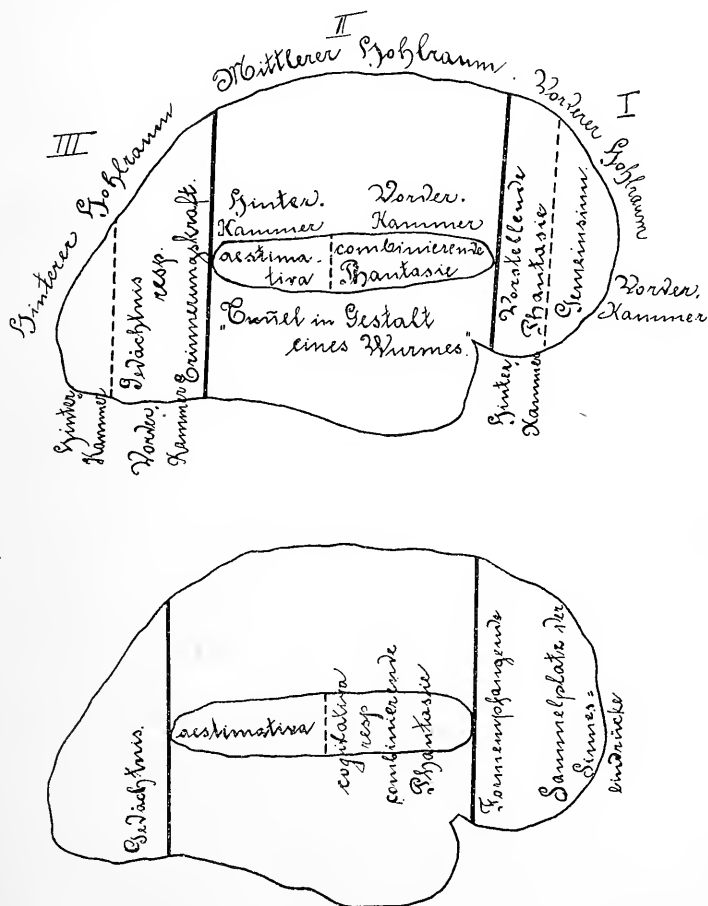 II
Mittlerer Hohlraum.
I
Vorderer Hohlraum
III
Hinterer Hohlraum
Hinter.
Kammer
Vorder.
Kammer
aestima-
tiva
combinierende
Phantasie
„Tunnel in Gestalt
eines Wurmes."
Gedächtnis
resp.
Erinnerungskraft.
Vorstellende
Phantasie
Gemeinsinn.
Vorder.
Kammer
Hinter.
Kammer
Hinter.
Kammer
Vorder.
Kammer
Gedächtnis.
aestimativa
cogitativa
resp
combinierende
Phantasie
Formempfangende
Sammelplatz der
Sinnes=
eindrücke